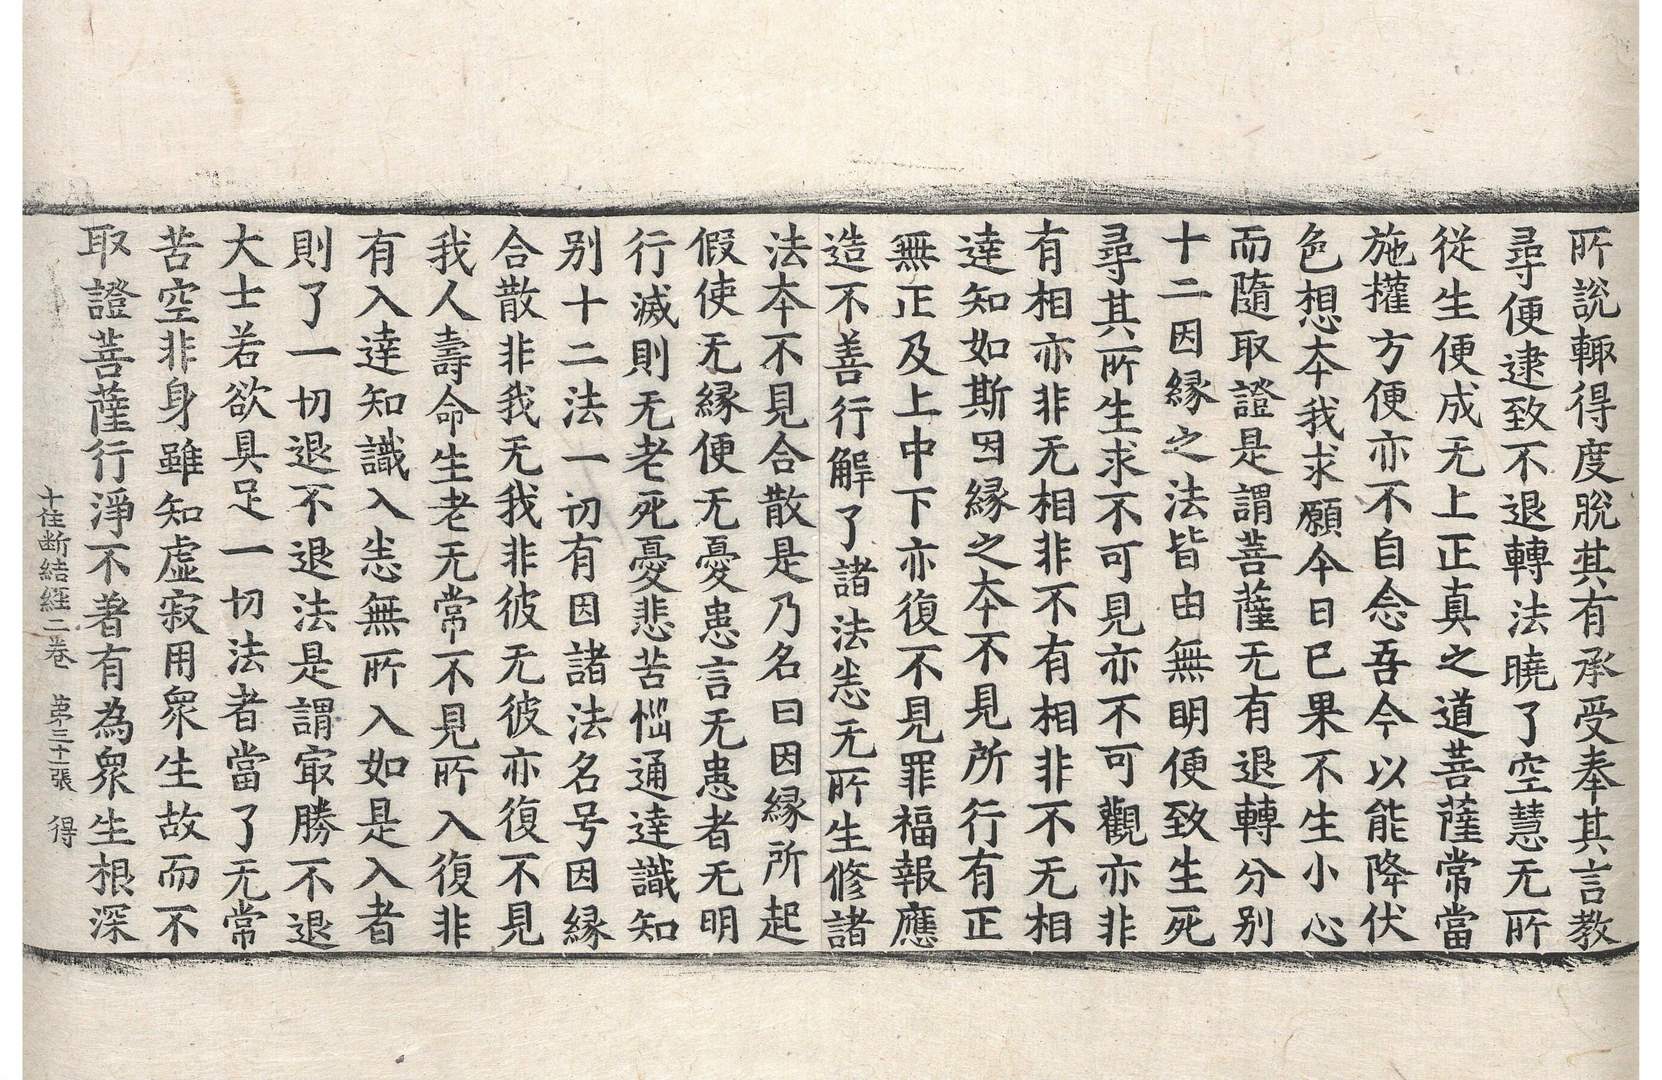 所說輙得度脫其有承受奉其言教
尋便逮致不退轉法曉了空慧无所
從生便成无上正真之道菩薩常當
施攉方便亦不自念吾今以能降伏
色想本我求願今日已果不生小心
而隨取證是謂菩薩无有退轉分別
十二因縁之法皆由無明便致生死
尋其所生求不可見亦不可觀亦非
有相亦非无相非不有相非不无相
達知如斯因縁之本不見所行有正
無正及上中下亦復不見罪福報應
造不善行解了諸法悉无所生修諸
法本不見合散是乃名曰因縁所起
假使无縁便无憂患言无患者无明
行滅則无老死憂悲苦惱通達識知
别十二法一切有因諸法名号因縁
合散非我无我非彼无彼亦復不見
我人壽命生老无常不見所入復非
有入達知識入悉無所入如是入者
則了一切退不退法是謂冣勝不退
大士若欲具足一切法者當了无常
苦空非身雖知虛寂用衆生故而不
取證菩薩行淨不著有為衆生根深
十住断結經二卷 第三十張 得